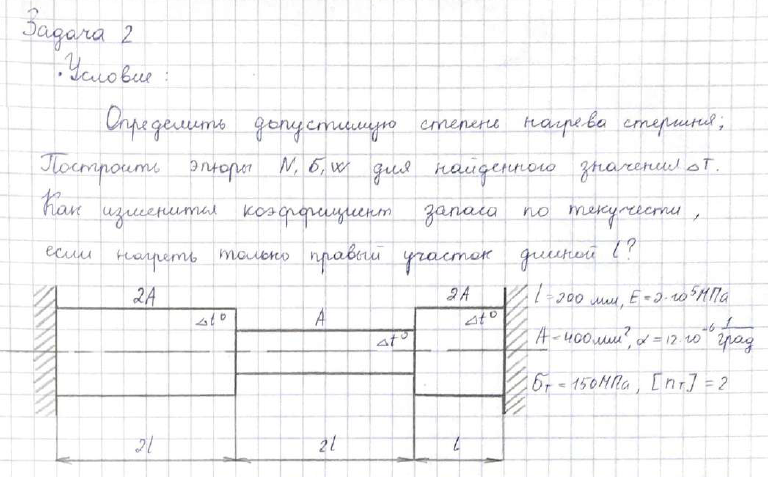 Задача 2
• Условие:
Определить допустимую степень нагрева стержня;
Построить эпюры N, б, w для найденного значения ΔT.
Как изменится коэффициент запаса по текучести,
если нагреть только правый участок длиной l?
2A
A
2A
Δt°
Δt°
Δt°
l=200 мм, E=2·10⁵МПа
A=400мм², α=12·10⁻⁶ 1/град
бт=150МПа, [nт]=2
2l
2l
l